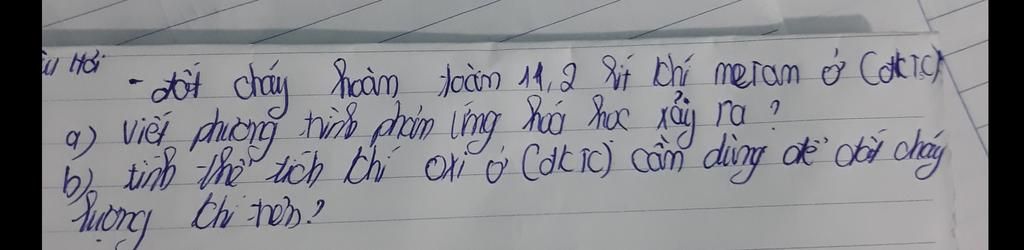 Hỏi
- đốt cháy hoàn toàn 11,2 lít khí metam ở (đktc)
a) viết phương trình phản ứng hoá học xảy ra?
b) tính thể tích khí oxi ở (đktc) cần dùng để đốt cháy
lượng khí trên?